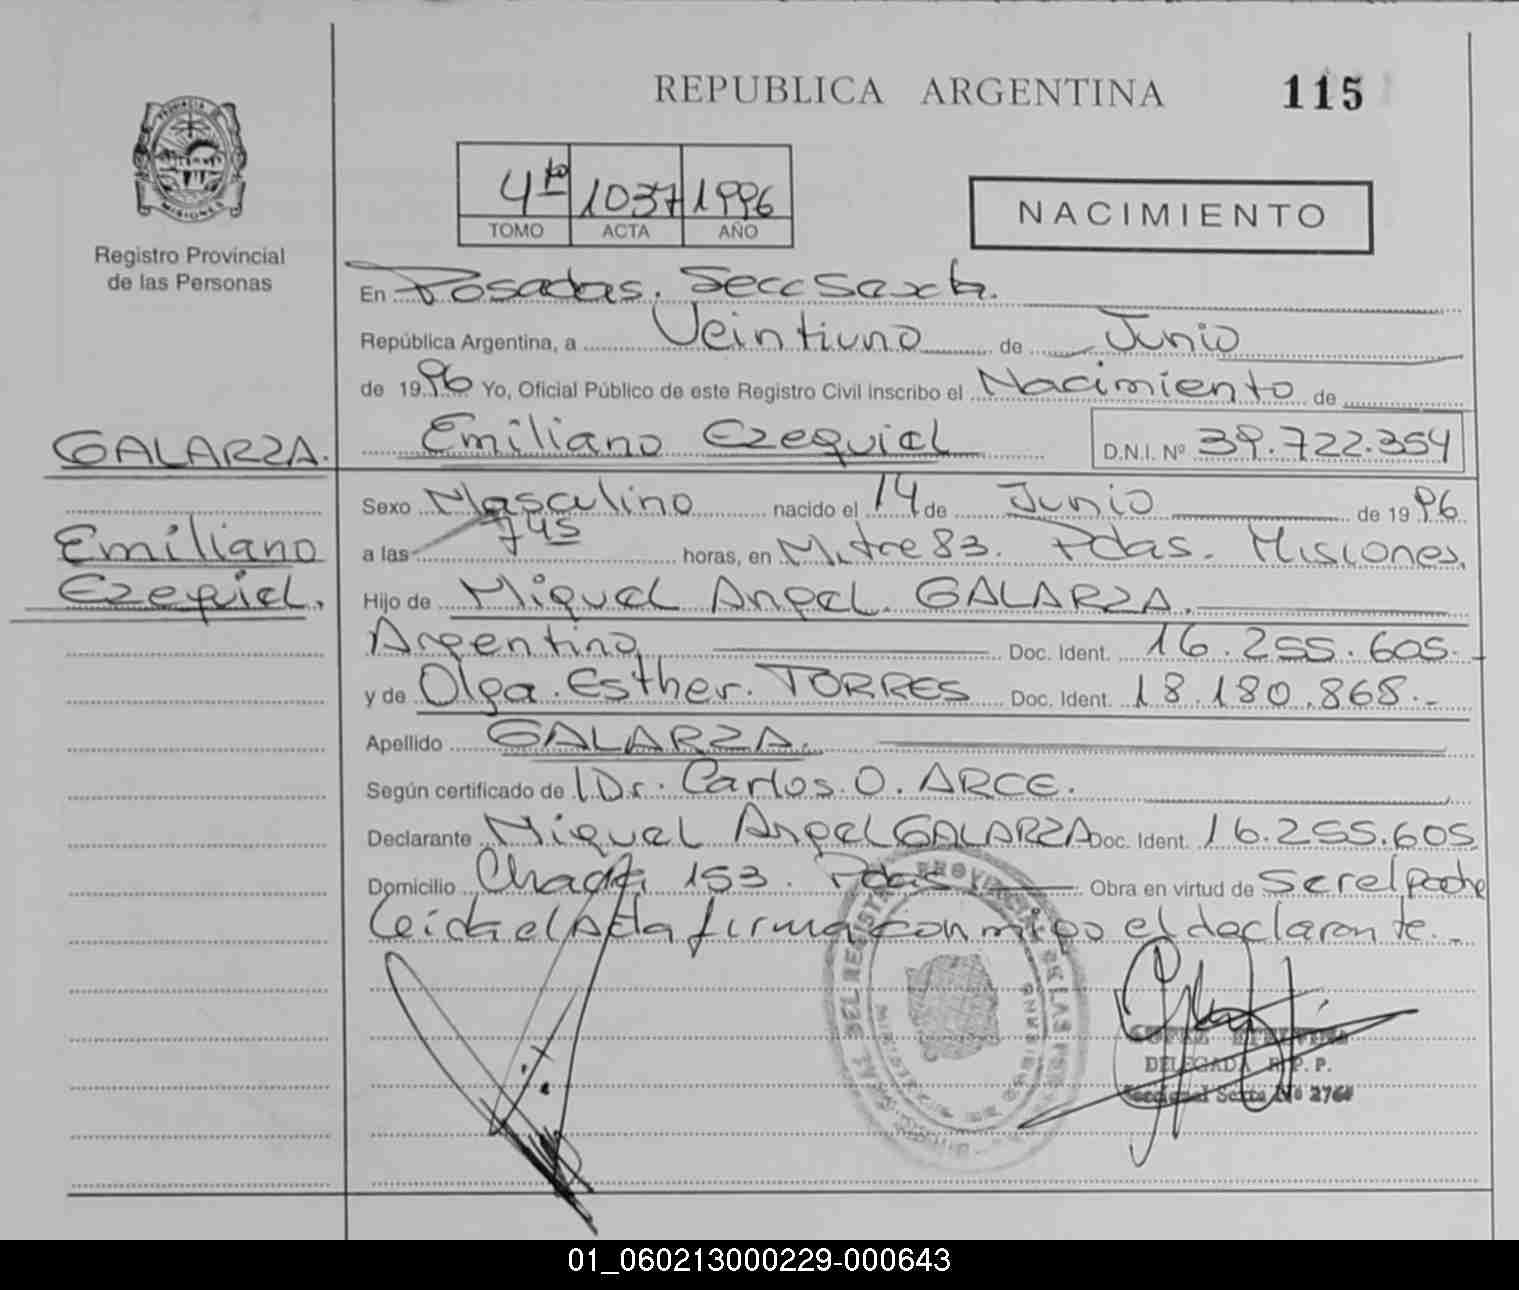 REPUBLICA ARGENTINA 115
PROVINCIA
MISIONES
Registro Provincial
de las Personas
4to 1037 1996
TOMO ACTA AÑO
NACIMIENTO
En Posadas. Secc Sexta.
República Argentina, a Veintiuno de Junio
de 1996 Yo, Oficial Público de este Registro Civil inscribo el Nacimiento de
GALARZA.
Emiliano Ezequiel D.N.I. Nº 39.722.354
Emiliano
Ezequiel.
Sexo Masculino nacido el 14 de Junio de 1996
a las 745 horas, en Mitre 83. Pdas. Misiones.
Hijo de Miguel Angel. GALARZA.
Argentino Doc. Ident. 16.255.605.-
y de Olga. Esther. TORRES Doc. Ident. 18.180.868.-
Apellido GALARZA.
Según certificado de Dr. Carlos. O. ARCE.
Declarante Miguel Angel GALARZA Doc. Ident. 16.255.605
Domicilio 153. Pdas Obra en virtud de Ser el padre
leida el Acta firma conmigo el declarante.-
DELEGADA R.P.P.
Seccional Sexta Nº 276
01_060213000229-000643